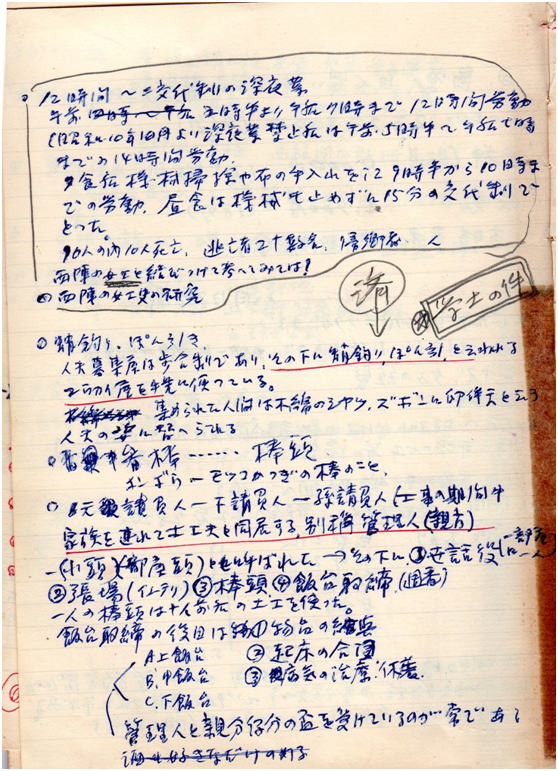 12時間〜二交代制の深夜業
午前 五時半より午后7時まで12時間労動
(昭和10年10月より深夜業禁止 は午前5時半〜午后七時
までの14時間労動。
夕食后機・材掃除や布の手入れを 9時半から10時ま
での労動、昼食は機械も止めずに15分の交代制で
とった。
90人の内10人死亡、逃亡者二十数名、帰郷者 人
西陣の女工と結びつけて考へてみては!
◎西陣の女工史の研究
済
学士の件
○ 鉤り、ぽん引き、
人夫募集屋は歩合制であり、その下に 鉤り、ぽん引、と云われる
を手先に使っている。
集められた人間は木綿のシャツ、ズボンに印伴天と云う
人夫の姿に替へられる
○ 番棒……棒頭
ボンボラーモッコかつぎの棒のこと、
○ 元請負人ー下請負人ー孫請負人(工事の期間中
家族を連れて土工夫と同居する、別称管理人(親方)
ー(小頭)(部屋頭)とも呼ばれた→その下に①世話役(一部屋に一人)
②帳場(インテリ)③棒頭④飯台取締(週番)
一人の棒頭は十人 の土工を使った。
飯台取締の役目は①物品の
A上飯台 ②起床の合図
B.中飯台 ③病気の治療.休養
C.下飯台
管理人と親分仔分の盃を受けているのが常である